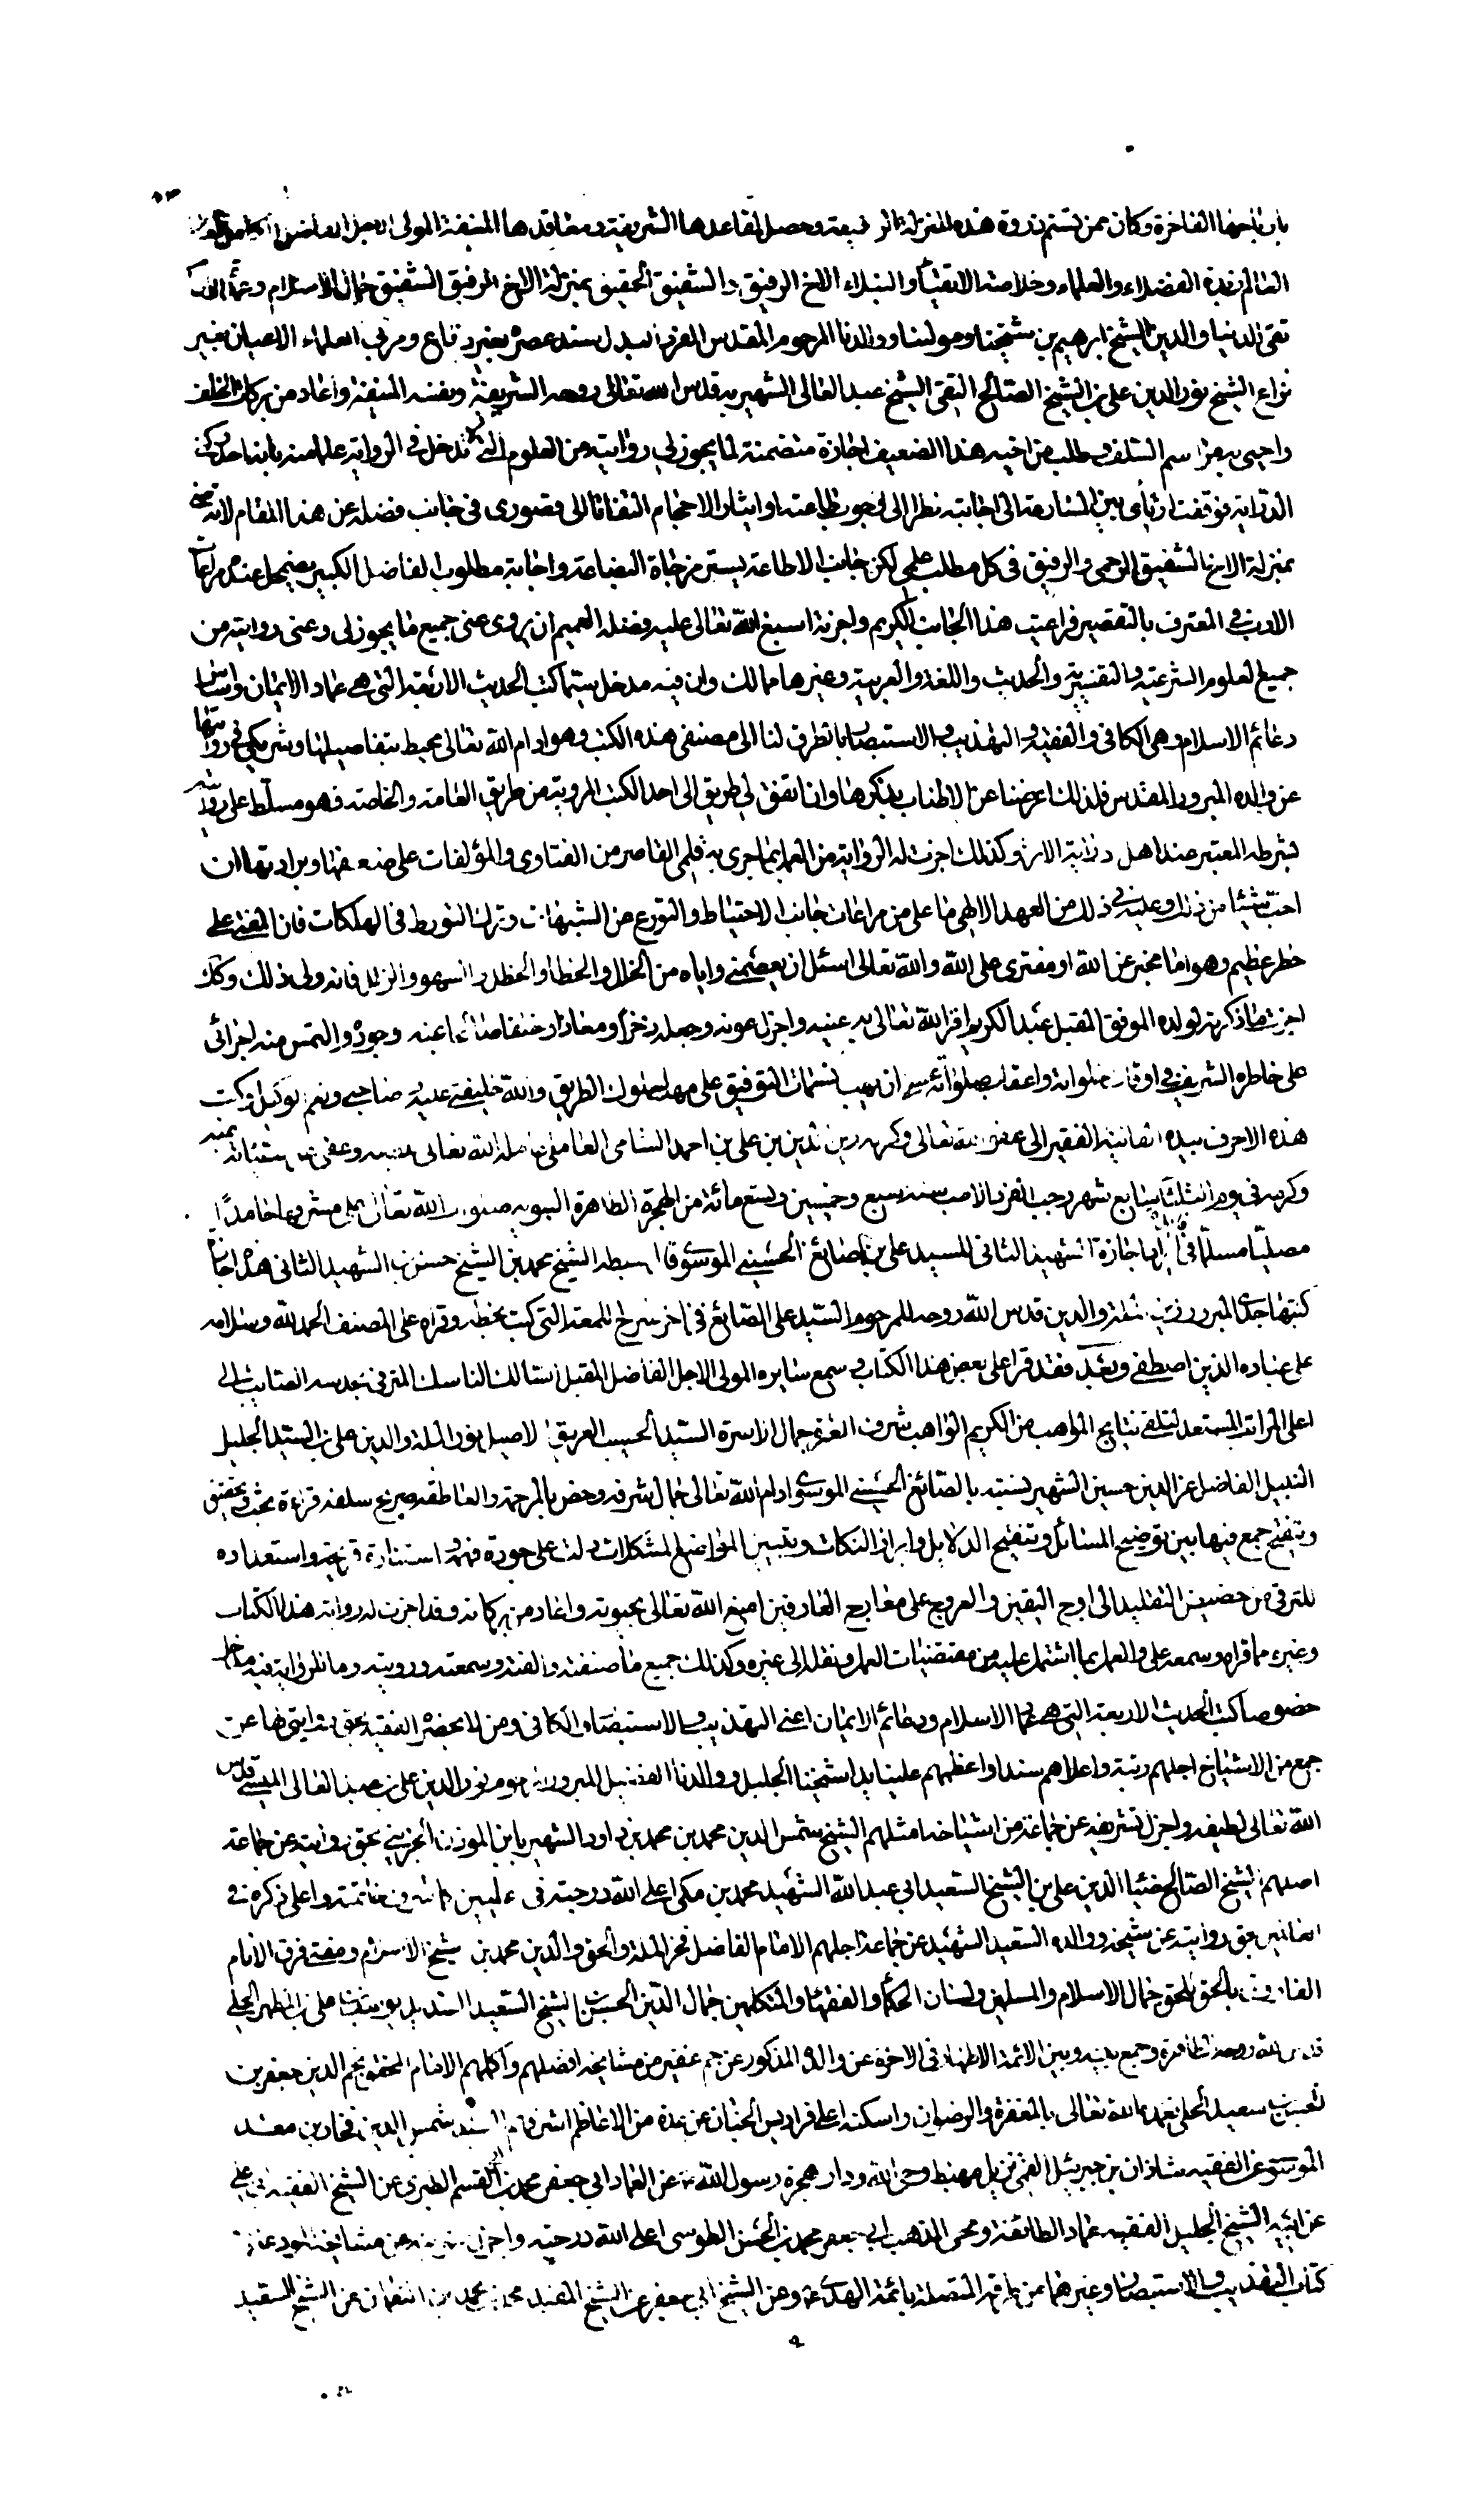 بارباحها الفاخرة وكان ممن تسنم ذروة هذه المنزلة الرفيعة وحصل مقاعدها الشريفة ومعاقدها المنيفة المولى الاجل الفاضل الكامل
العالم زبدة الفضلاء والعلماء وخلاصة الاتقياء والنبلاء الاخ الرفيق والشفيق الحقيق بمنزلة الاخ الرفيق الشفيق جمال الاسلام وعماد
تقى الدنيا والدين الشيخ ابرهيم بن شيخنا ومولينا ووالدنا المرحوم المقدس المفرد البدل سند عصره بغير دفاع ومربى العلماء الاعيان بغير
نزاع الشيخ نور الدين على بن الشيخ الصالح التقى الشيخ عبد العالى الشهير به قدس الله تعالى روحه الشريفة ونفسه المنيفة واعاد من بركات الخلف
واحيى به مراسم السلف وطلب من اخيه هذا الضعيف اجازة متضمنة لما يجوز لي روايته من العلوم التى تدخل في الرواية علما منه بانها احد ركنى
الدراية فوقفت ارتأى بين المسارعة الى اجابته نظرا الى وجوب طاعته او ايثار الاحجام التفاتا الى قصورى في جانب فضله عن هذا المقام لانه
بمنزلة الاخ الشفيق الرحمى والرفيق في كل مطلب علمى لكن جانب الاطاعة يستر مزجاة البضاعة واجابة مطلوب الفاضل الكبير يضمحل عنده مراعات
الادنى المعترف بالتقصير فراعيت هذا الجانب الكريم واجزته اسبغ الله تعالى عليه فضله العميم ان يروى عنى جميع ما يجوز لى وعنى روايته من
جميع العلوم الشرعية والتفسيرية والحديث واللغة والعربية وغيرها مما لك وان فيه مدخل سيما كتب الحديث الاربعة التى هى عماد الايمان واساس
دعائم الاسلام وهى الكافى والفقيه والتهذيب والاستبصار بالطرق لنا الى مصنفى هذه الكتب وهو ادام الله تعالى محيط بتفاصيلها وشريكى في روايتها
عن والده المبرور المقدس فلذلك اعرضنا عن الاطناب بذكرها وان اتفق لى طريق الى احد الكتب المروية من طريق العامة والخاصة فهو مسلط على روايته
بشرطه المعتبر عند اهل دراية الاثر وكذلك اجزت له الرواية من العمل بما جرى به قلمى القاصر من الفتاوى والمؤلفات على ضعفها وبرادتها ان
احب شيئا من ذلك وعليه في ذلك من العهد الالهى ما على من مراعات جانب الاحتياط والتورع عن الشبهات وترك التورط في الهلكات فان المفتى على
خطر عظيم وهو اما مخبر عن الله او مفترى على الله والله تعالى اسئل ان يعصمنى واياه من الخلل والخطأ والخطل والسهو والزلل فانه ولى ذلك وكذلك
اجزت ما ذكرته لولده الموفق المقبل عبد الكريم اقر الله تعالى به عينيه واجزل عونه وجعله ذخرا ومعاذا وجوده والتمس منه اجرائى
على خاطره الشريف في اوقات خلواته واعقاب صلواته عسى ان يهب نسمات التوفيق على مهد سلوك الطريق والله خليفتى عليه وهو صاحبى ونعم الوكيل وكتب
هذه الاحرف بيده الفانية الفقير الى عفو الله تعالى وكرمه زين الدين بن على بن احمد الشامى العاملى عامله الله تعالى بلطفه وعفى عن سيئاته بمنه
وكرمه في يوم الثلثا سابع شهر رجب الفرد الاصب سنة سبع وخمسين وتسع مائة من الهجرة الطاهرة النبوية صلوات الله تعالى على مشرفها حامدا
مصليا مسلما اجازة الشهيد الثانى للسيد على بن الصائغ الحسينى الموسوى قال سبطه الشيخ محمد بن الشيخ حسن بن الشهيد الثانى هذه اجازة
كتبها جدى المبرور زين الملة والدين قدس الله روحه للمرحوم السيد على الصائغ في اخر شرح اللمعة التى كتبت بخطه وقراه على المصنف الحمد لله وسلامه
على عباده الذين اصطفى وبعد فقد قرا على بعض هذا الكتاب وسمع سايره المولى الاجل الفاضل المقبل السالك الناسك المترقى بحدسه الصايب الى
اعلى المراتب المستعد لتلقى نتايج المواهب من الكريم الواهب شرف العترة جمال الاسرة السيد الحسيب العريق الاصيل نور الملة والدين على بن السيد الجليل
النبيل الفاضل عز الدين حسين الشهير نسبته بالصائغ الحسينى الموسوى ادام الله تعالى جمال شرفه وخص بالمرحمة والعاطفة ضريح سلفه قراءة بحث وتحقيق
وتنقيح جمع فيها بين توضيح المسائل وتنقيح الدلايل وابراز النكات وتبيين المواضع المشكلات دلت على جودة فهمه واستنارة قريحته واستعداده
للترقى من حضيض التقليد الى اوج اليقين والعروج على معارج العارفين امتع الله تعالى بحيوته واعاد من بركاته وقد اجزت له رواية هذا الكتاب
وغيره مما قراه وسمعه على والعمل بما اشتمل عليه من مقتضيات العمل ونقله الى غيره وكذلك جميع ما صنفته والفته وسمعته ورويته وما للرواية فيه مدخل
خصوصا كتب الحديث الاربعة التى هى عماد الاسلام ودعائم الايمان اعنى التهذيب والاستبصار والكافى ومن لا يحضره الفقيه بحق روايتى لها عن
جمع من الاشياخ اجلهم رتبة واعلاهم سندا واعظمهم علينا يدا شيخنا الجليل ووالدنا النبيل المبرور المرحوم نور الدين على بن عبد العالى الميسى قدس
الله تعالى لطيفه واجزل تشريفه عن جماعة من اشياخه امثلهم الشيخ شمس الدين محمد بن محمد بن داود الشهير بابن الموذن الجزينى بحق روايته عن جماعة
اصلهم الشيخ الصالح ضياء الدين على بن الشيخ السعيد ابى عبد الله الشهيد محمد بن مكى اعلى الله درجته في عليين كما شرف خاتمته واعلى ذكره في
العالمين بحق روايته عن شيخه ووالده السعيد الشهيد عن جماعة اجلهم الامام الفاضل فخر الملة والحق والدين محمد بن شيخ الاسلام ومفتى فرق الانام
الفاروق بالحق للحق جمال الاسلام والمسلمين ولسان الحكماء والفقهاء والمتكلمين جمال الدين الحسن بن الشيخ السعيد السديد يوسف بن على بن المطهر الحلى
قدس الله روحه الطاهرة وجمع بينه وبين الائمة الاطهار في الاخرة عن والده المذكور عن جم غفير من مشايخه افضلهم واكملهم الامام المحقق نجم الدين جعفر بن
الحسن بن سعيد الحلى تغمده الله تعالى بالمغفرة والرضوان واسكنه اعلى فراديس الجنان عن عدة من الاعاظم السيد شمس الدين فخار بن معد
الموسوى عن الفقيه شاذان بن جبرئيل القمى نزيل مهبط وحى الله ودار هجرة رسول الله ص عن العماد ابى جعفر محمد بن القسم الطبرى عن الشيخ الفقيه ابى على
عن ابيه الشيخ الجليل الفقيه عماد الطائفة ومحى المذهب ابى جعفر محمد بن الحسن الطوسى اعلى الله درجته واجزل مثوبته عن مشايخه
كتاب التهذيب والاستبصار وغيرهما من طرقه المتصلة بائمة الهدى ع وعن الشيخ ابى جعفر عن الشيخ المفيد محمد بن محمد بن النعمان عن الشيخ السعيد